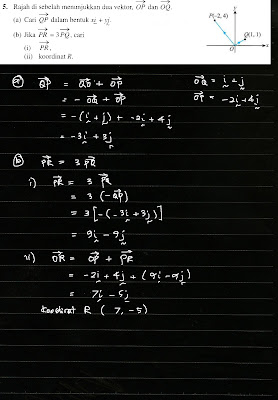 5. Rajah di sebelah menunjukkan dua vektor, OP dan OQ.
(a) Cari QP dalam bentuk xi + yj.
(b) Jika PR = 3PQ, cari
(i) PR,
(ii) koordinat R.
y
P(-2, 4)
Q(1, 1)
O
x
a) QP = QO + OP
= - OQ + OP
= -(i + j) + -2i + 4j
= -3i + 3j
OQ = i + j
OP = -2i + 4j
b) PR = 3 PQ
i) PR = 3 PQ
= 3 (-QP)
= 3 [-(-3i + 3j)]
= 9i - 9j
ii) OR = OP + PR
= -2i + 4j + (9i - 9j)
= 7i - 5j
Koordinat R ( 7, -5)